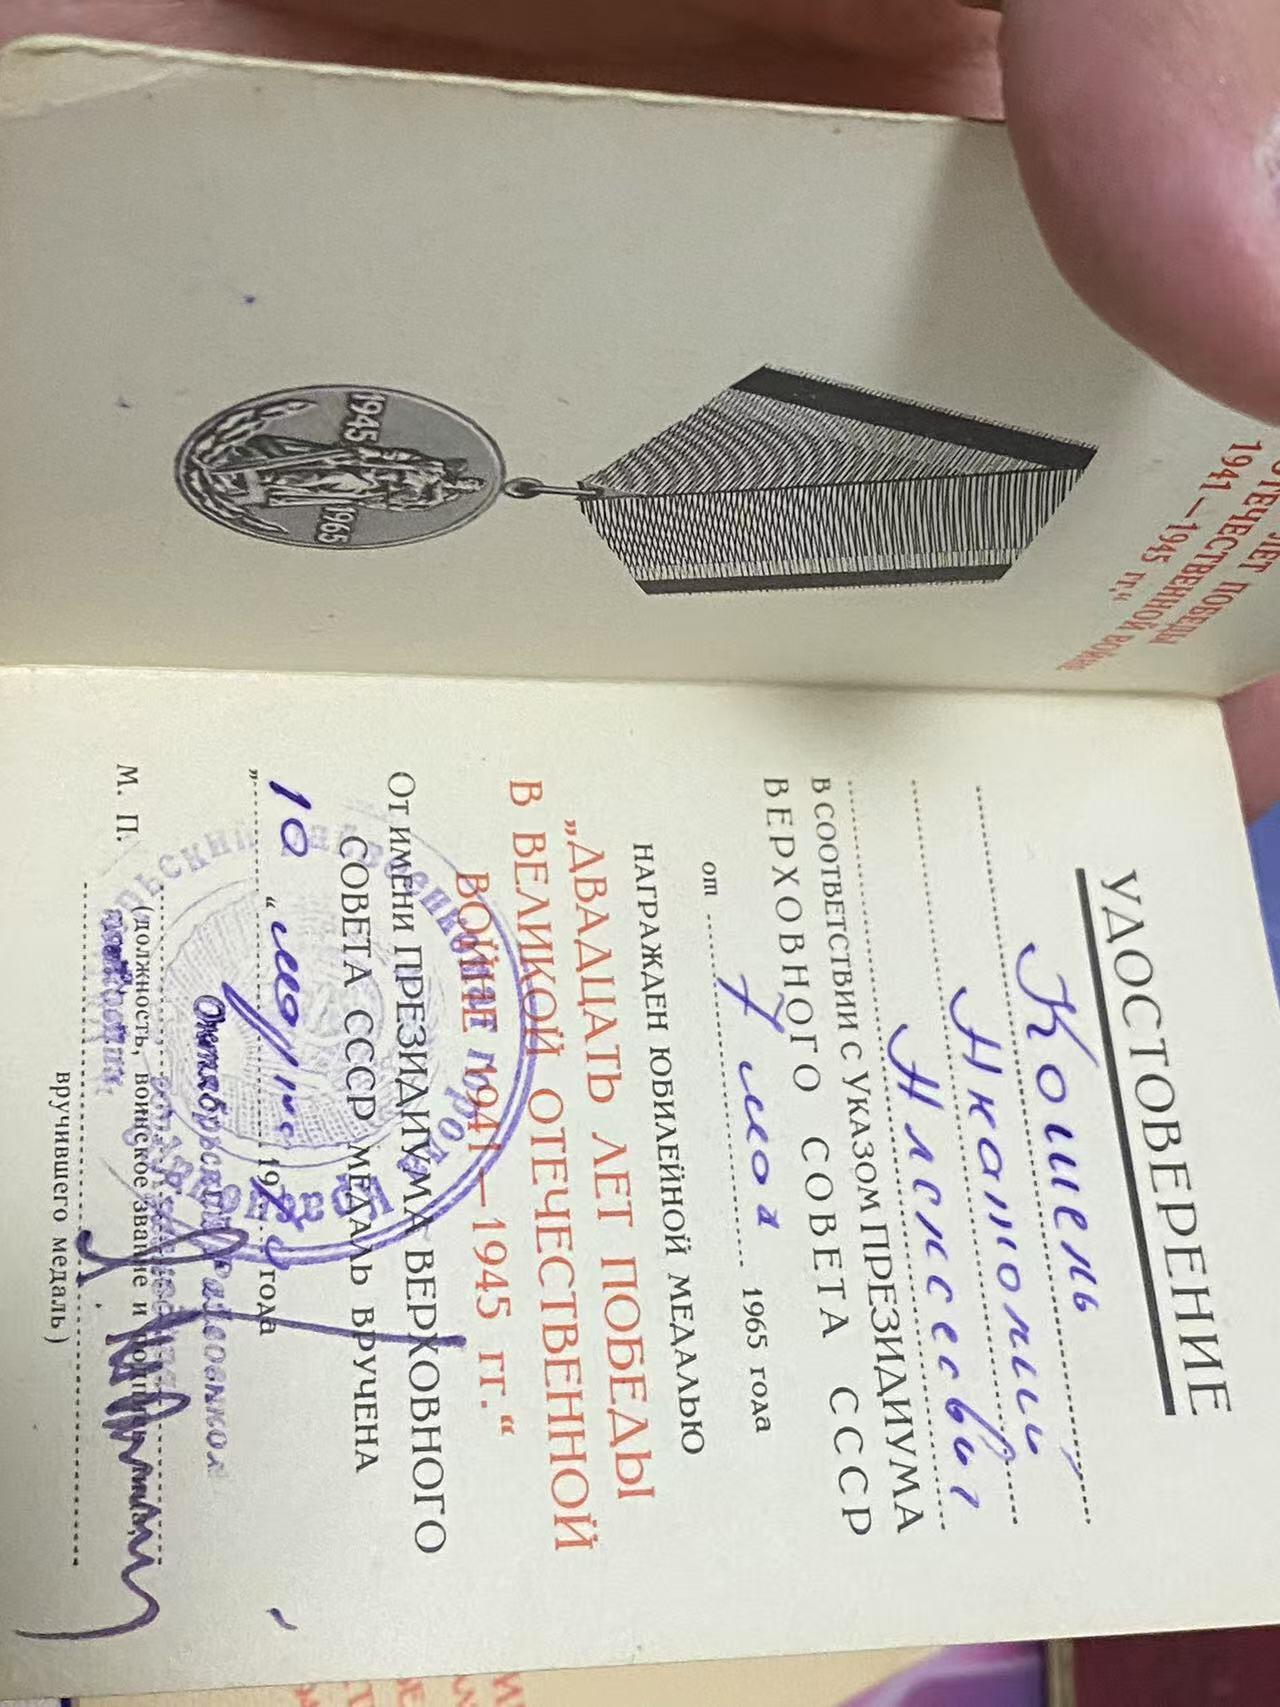 ЛЕТ ПОБЕДЫ
ОТЕЧЕСТВЕННОЙ ВОЙНЕ
1941—1945 гг."
1945
1965
УДОСТОВЕРЕНИЕ
Кошель
Анатолий
В СООТВЕТСТВИИ С УКАЗОМ ПРЕЗИДИУМА
ВЕРХОВНОГО СОВЕТА СССР
от 7 мая 1965 года
НАГРАЖДЕН ЮБИЛЕЙНОЙ МЕДАЛЬЮ
„ДВАДЦАТЬ ЛЕТ ПОБЕДЫ
В ВЕЛИКОЙ ОТЕЧЕСТВЕННОЙ
ВОЙНЕ 1941—1945 гг."
От имени ПРЕЗИДИУМА ВЕРХОВНОГО
СОВЕТА СССР МЕДАЛЬ ВРУЧЕНА
„10“ марта 19 года
Октябрьский
М. П.
(должность, воинское звание и подпись
вручившего медаль)